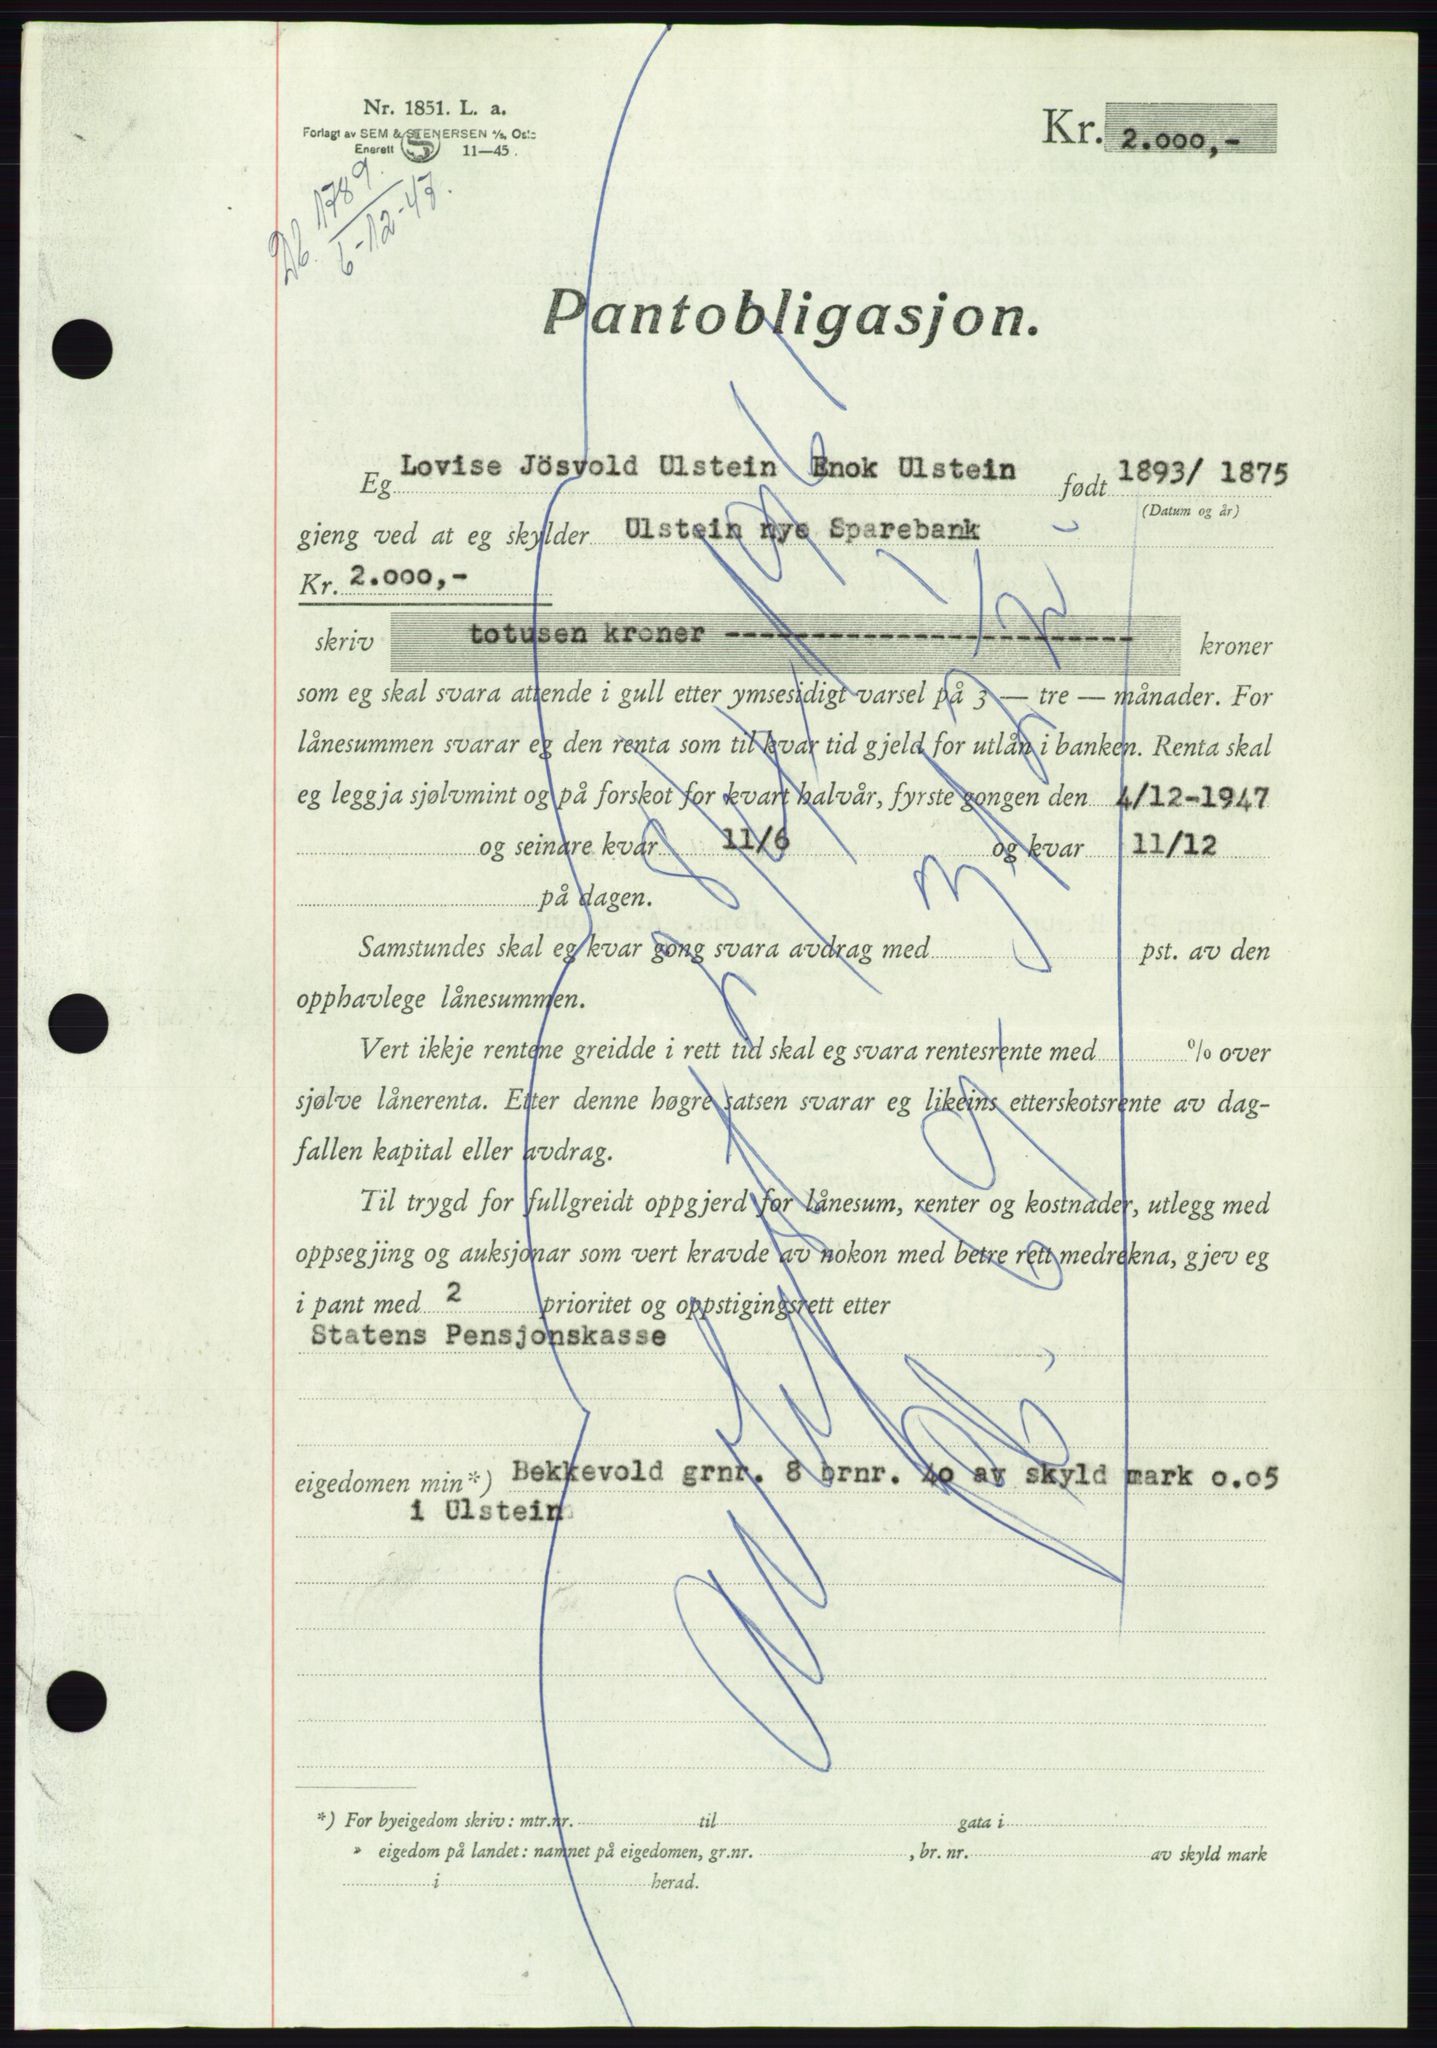 Nr. 1851. L. a.
Forlagt av SEM & STENERSEN A/S, Oslo
Enerett S 11—45.
Kr. 2.000,-
Db. 1789.
6-12-47.
Pantobligasjon.
Eg Lovise Jösvold Ulstein Enok Ulstein født 1893/ 1875
(Datum og år)
gjeng ved at eg skylder Ulstein nye Sparebank
Kr. 2.000,-
skriv totusen kroner ------------------------------ kroner
som eg skal svara attende i gull etter ymsesidigt varsel på 3 — tre — månader. For
lånesummen svarar eg den renta som til kvar tid gjeld for utlån i banken. Renta skal
eg leggja sjølvmint og på forskot for kvart halvår, fyrste gongen den 4/12-1947
og seinare kvar 11/6 og kvar 11/12
på dagen.
Samstundes skal eg kvar gong svara avdrag med pst. av den
opphavlege lånesummen.
Vert ikkje rentene greidde i rett tid skal eg svara rentesrente med % over
sjølve lånerenta. Etter denne høgre satsen svarar eg likeins etterskotsrente av dag-
fallen kapital eller avdrag.
Til trygd for fullgreidt oppgjerd for lånesum, renter og kostnader, utlegg med
oppsegjing og auksjonar som vert kravde av nokon med betre rett medrekna, gjev eg
i pant med 2 prioritet og oppstigingsrett etter
Statens Pensjonskasse
eigedomen min*) Bekkevold grnr. 8 brnr. 40 av skyld mark 0.05
i Ulstein
*) For byeigedom skriv: mtr.nr. til gata i
» eigedom på landet: namnet på eigedomen, gr.nr. , br. nr. av skyld mark
i herad.